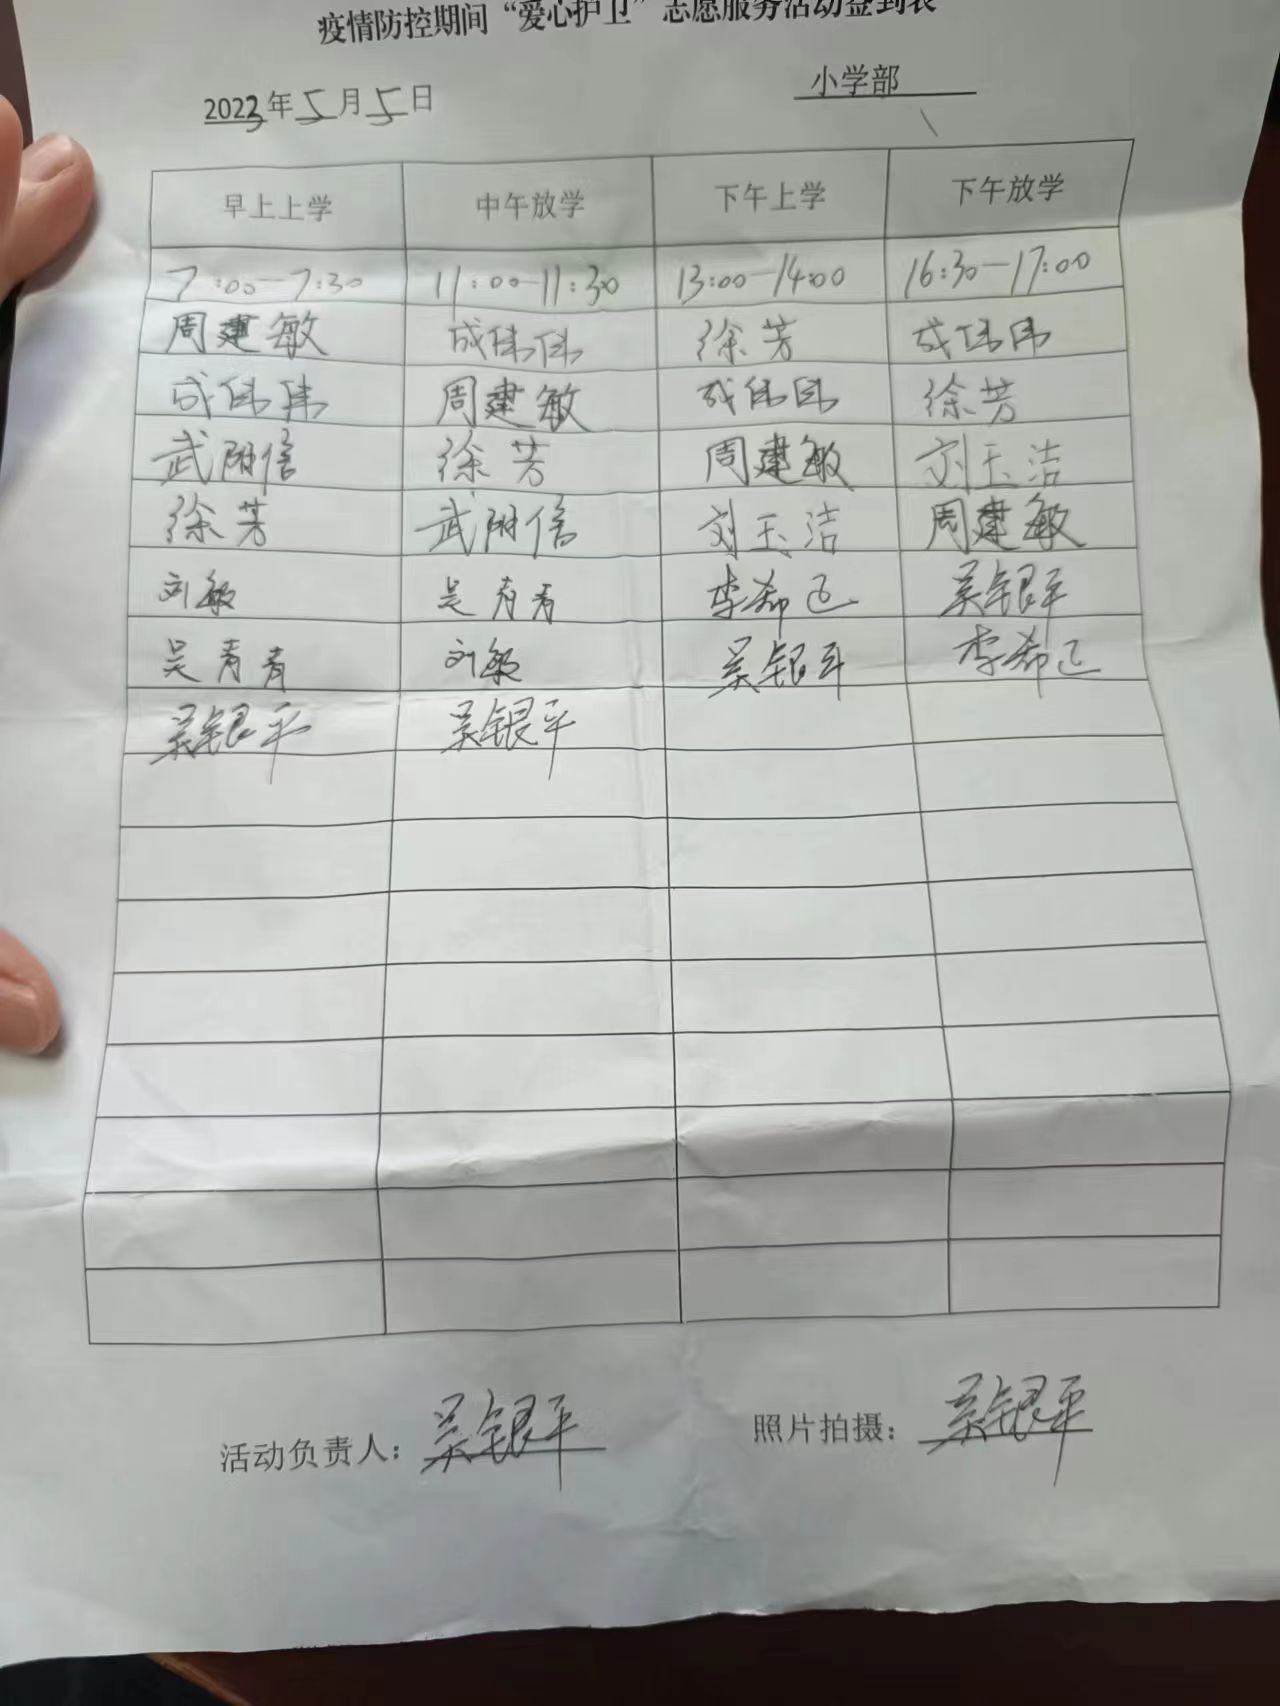 疫情防控期间“爱心护卫”志愿服务活动签到表
2023年5月5日 小学部
早上上学 中午放学 下午上学 下午放学
7:00—7:30 11:00—11:30 13:00—14:00 16:30—17:00
周建敏 成伟伟 徐芳 成伟伟
成伟伟 周建敏 成伟伟 徐芳
武附信 徐芳 周建敏 刘玉洁
徐芳 武附信 刘玉洁 周建敏
刘敏 吴青青 李希迅 吴银平
吴青青 刘敏 吴银平 李希迅
吴银平 吴银平
活动负责人：吴银平 照片拍摄：吴银平